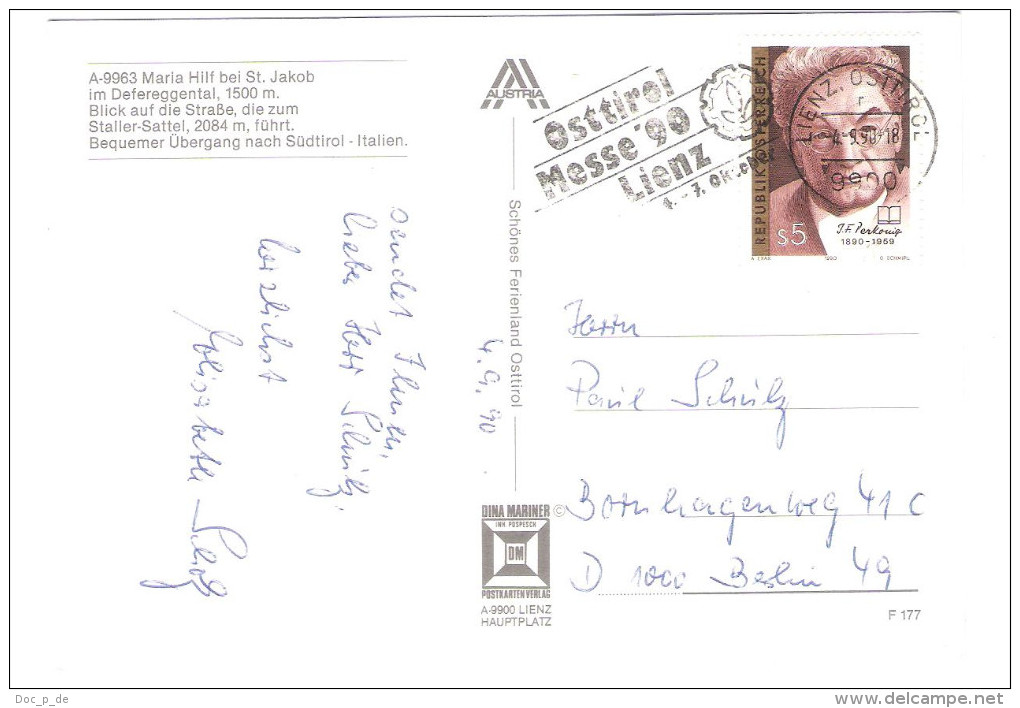 A-9963 Maria Hilf bei St. Jakob
im Defereggental, 1500 m.
Blick auf die Straße, die zum
Staller-Sattel, 2084 m, führt.
Bequemer Übergang nach Südtirol - Italien.
AUSTRIA
Osttirol
Messe '90
Lienz
4. - 7. Oktober
LIENZ, OSTTIROL
4.-9.90-18
9900
REPUBLIK ÖSTERREICH
S5
J.F. Perkonig
1890-1959
1990
sendet Ihnen,
lieber Herr Schulz,
herzlichst
Elisabeth
4.9.90
Schönes Ferienland Osttirol
Herrn
Paul Schulz
Bornhagenweg 41 c
D 1000 Berlin 49
DINA MARINER ©
INH. POSPESCH
DM
POSTKARTENVERLAG
A-9900 LIENZ
HAUPTPLATZ
F 177
Doc_p_de
www.delcampe.net